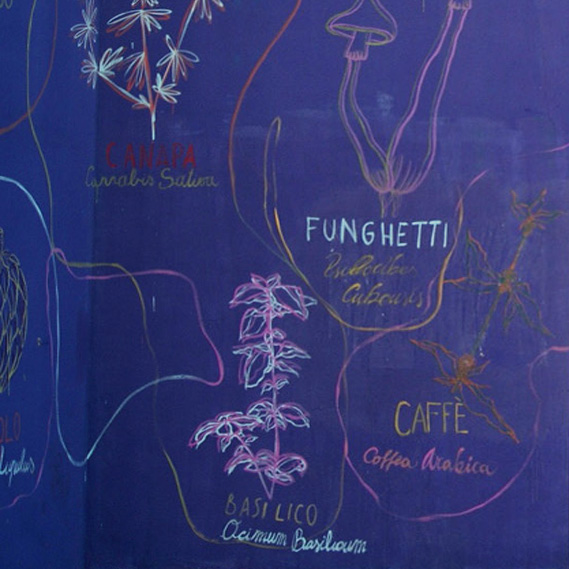 CANAPA
Cannabis Sativa
FUNGHETTI
Psilocibe
Cubensis
CAFFÈ
Coffea Arabica
OLO
Lupulus
BASILICO
Ocimum Basilicum